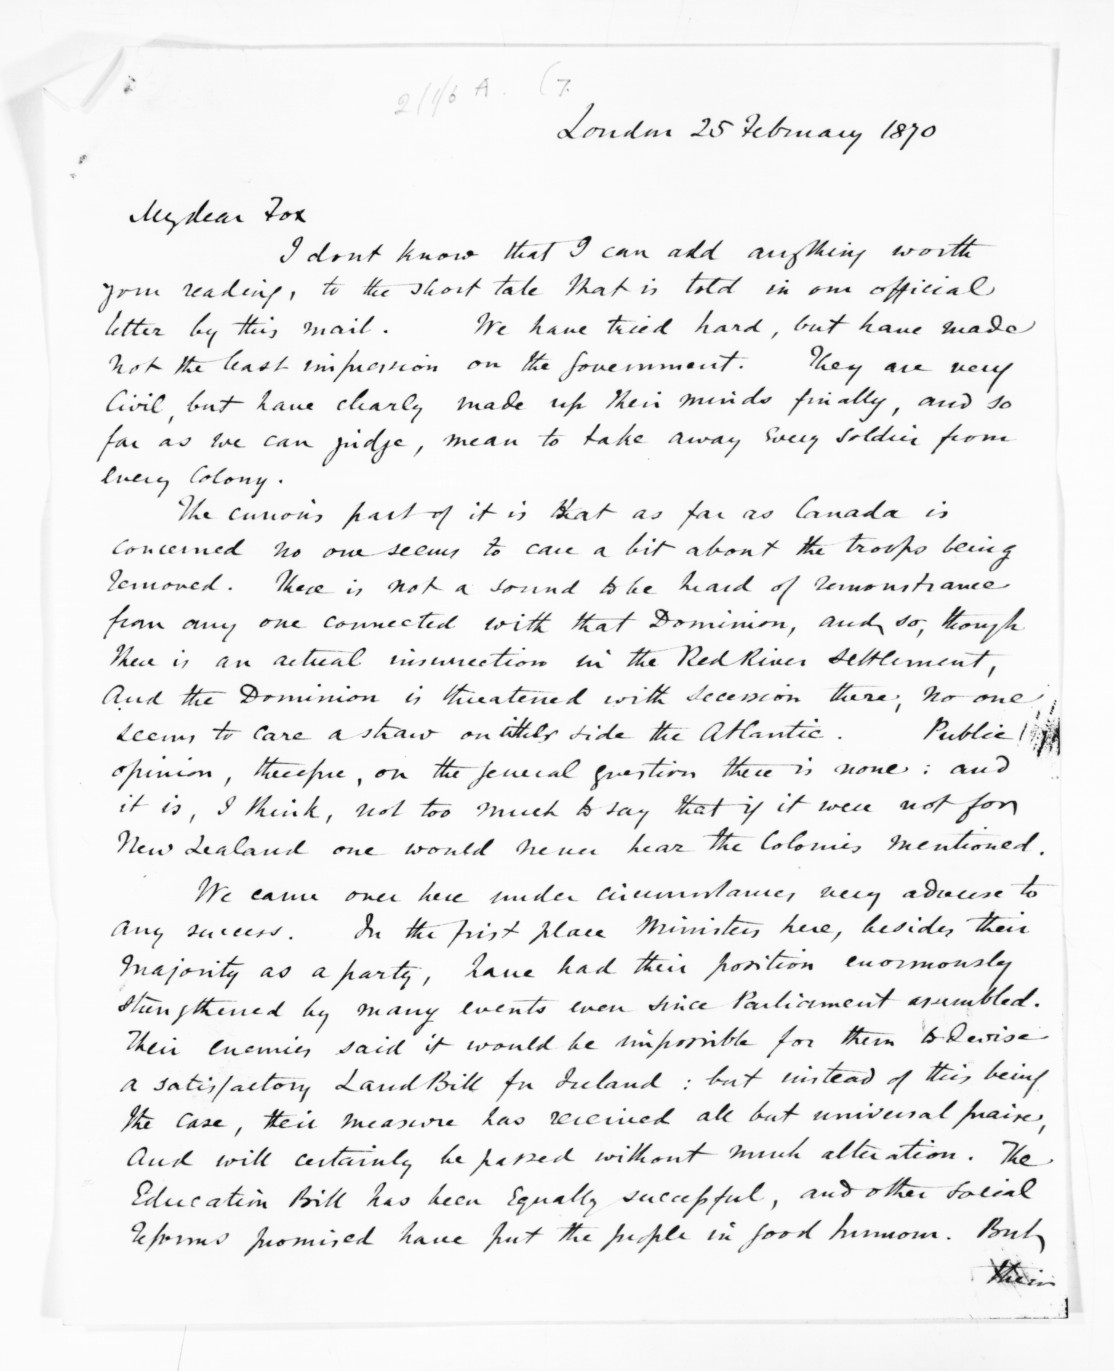 2/1/6 A. (7.
London 25 February 1870
My dear Fox
I dont know that I can add anything worth
your reading, to the short tale that is told in our official
letter by this mail. We have tried hard, but have made
not the least impression on the Government. They are very
Civil, but have clearly made up their minds finally, and so
far as we can judge, mean to take away every soldier from
every Colony.
The curious part of it is that as far as Canada is
concerned no one seems to care a bit about the troops being
removed. There is not a sound to be heard of remonstrance
from any one connected with that Dominion, and so, though
there is an actual insurrection in the Red River Settlement,
and the Dominion is threatened with secession there, no one
seems to care a straw on either side the Atlantic. Public
opinion, therefore, on the general question there is none: and
it is, I think, not too much to say that if it were not for
New Zealand one would never hear the Colonies mentioned.
We came over here under circumstances very adverse to
any success. In the first place Ministers here, besides their
Majority as a party, have had their position enormously
strengthened by many events even since Parliament assembled.
Their enemies said it would be impossible for them to devise
a satisfactory Land Bill for Ireland: but instead of this being
the case, their measure has received all but universal praise,
and will certainly be passed without much alteration. The
Education Bill has been equally successful, and other social
reforms promised have put the people in good humour. But
their